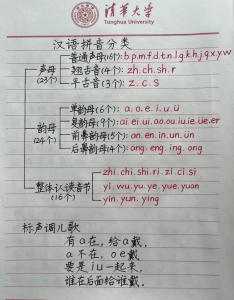 清华大学
Tsinghua University
汉语拼音分类
普通声母(16个): b p m f d t n l g k h j q x y w
声母 翘舌音(4个): zh ch sh r
(23个) 平舌音(3个): z c s
单韵母(6个): a. o. e. i. u. ü
韵母 复韵母(9个): ai ei ui ao ou iu ie üe er
(24个) 前鼻韵母(5个): an. en. in. un. ün
后鼻韵母(4个): ang. eng. ing. ong
zhi. chi. shi. ri. zi. ci. si
整体认读音节 yi. wu. yu. ye. yue. yuan
(16个) yin. yun. ying
标声调儿歌
有a在，给a戴，
a不在，oe戴
要是iu一起来，
谁在后面给谁戴。